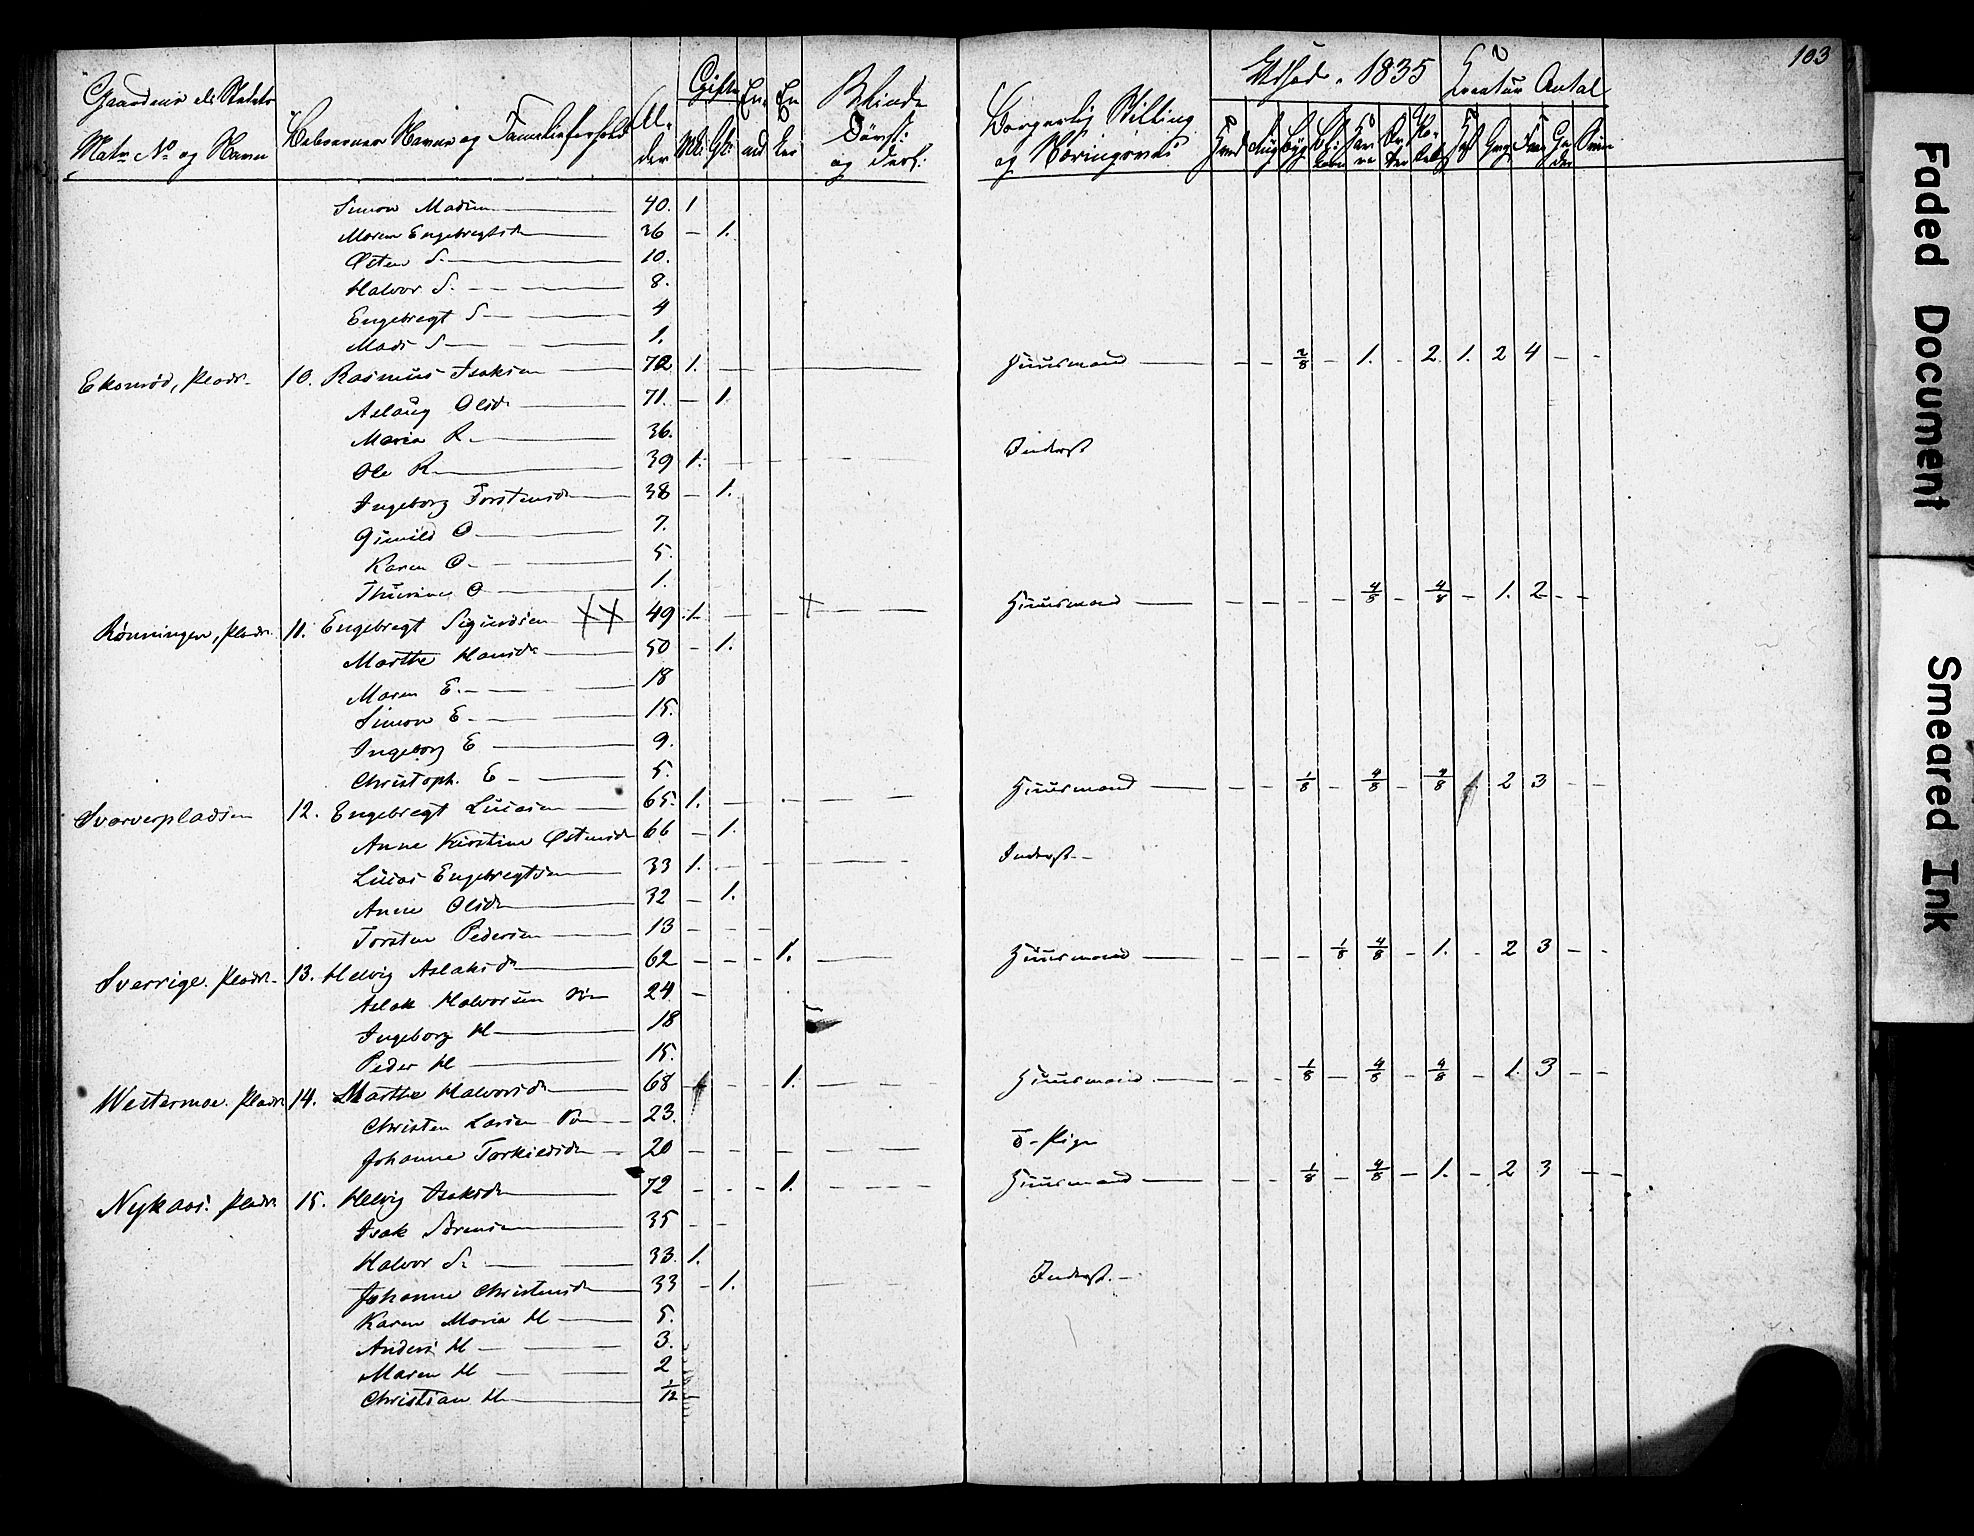 103
Gaardens ell Stedets
Matr No og Navn
Beboernes Navne og Familieforhold
Al-
der
Gifte
Mk.
Gk.
En-
En
ker
Blinde
Døvst:
og
Borgerlig Stilling
og Næringsvei
Udsæd. 1835
Creatur Antal
Simon Madsen 40. 1
Maren Engebregtsdr 36 — 1.
Østen S. 10.
Halvor S. 8.
Engebregt S 4
Mads S 1.
Ekornrød, Plads. 10. Rasmus Isaksen 72 1. Huusmand — — 2/8 — 1. — 2. 1. 2 4 — —
Aslaug Olsdr 71. — 1.
Maria R. 36.
Ole R. 39 1. Inderst
Ingeborg Torstensdr 38 — 1.
Gunild O 7.
Karen O 5.
Thurine O 1.
Rønningen, Plads. 11. Engebregt Sigurdsen XX 49 1. — — X — — Huusmand — — — — 4/8 — 4/8 — 1. 2 — —
Marthe Hansdr 50 — 1.
Maren E. 18
Simon E 15.
Ingeborg E 9.
Christoph. E 5.
Svarverpladsen 12. Engebregt Lucasen 65. 1. Huusmand — — 1/8 — 4/8 — 4/8 2 3 — —
Anne Kirstine Østensdr 66 — 1.
Lucas Engebregtsen 33 1. Inderst
Anne Olsdr 32 — 1.
Torsten Pedersen 13 — — —
Sverrige. Plads. 13. Helvig Aslaksdr 62 — — — 1. Huusmand — — — 1/8 4/8 — 1. — 2 3 — —
Aslak Halvorsen Søn 24 —
Ingeborg H 18
Peder H 15.
Westermoe. Plads. 14. Marthe Halvorsdr 68 1. Huusmand — — 1/8 — 4/8 — 4/8 — 1. 3 — —
Christen Larsen Søn 23.
Johanne Torkildsdr 20 — — — — — — T. Pige
Nykaas: Plads. 15. Helvig Isaksdr 72 — — — 1. — — — — Huusmand — — 1/8 — 4/8 — 1. — 2 3 — —
Isak Sørensen 35 — —
Halvor S. 33. 1. Inderst.
Johanne Christensdr 33 — 1.
Karen Maria H 5.
Anders H 3.
Maren H 2
Christian H 1/12
Faded Document
Smeared Ink